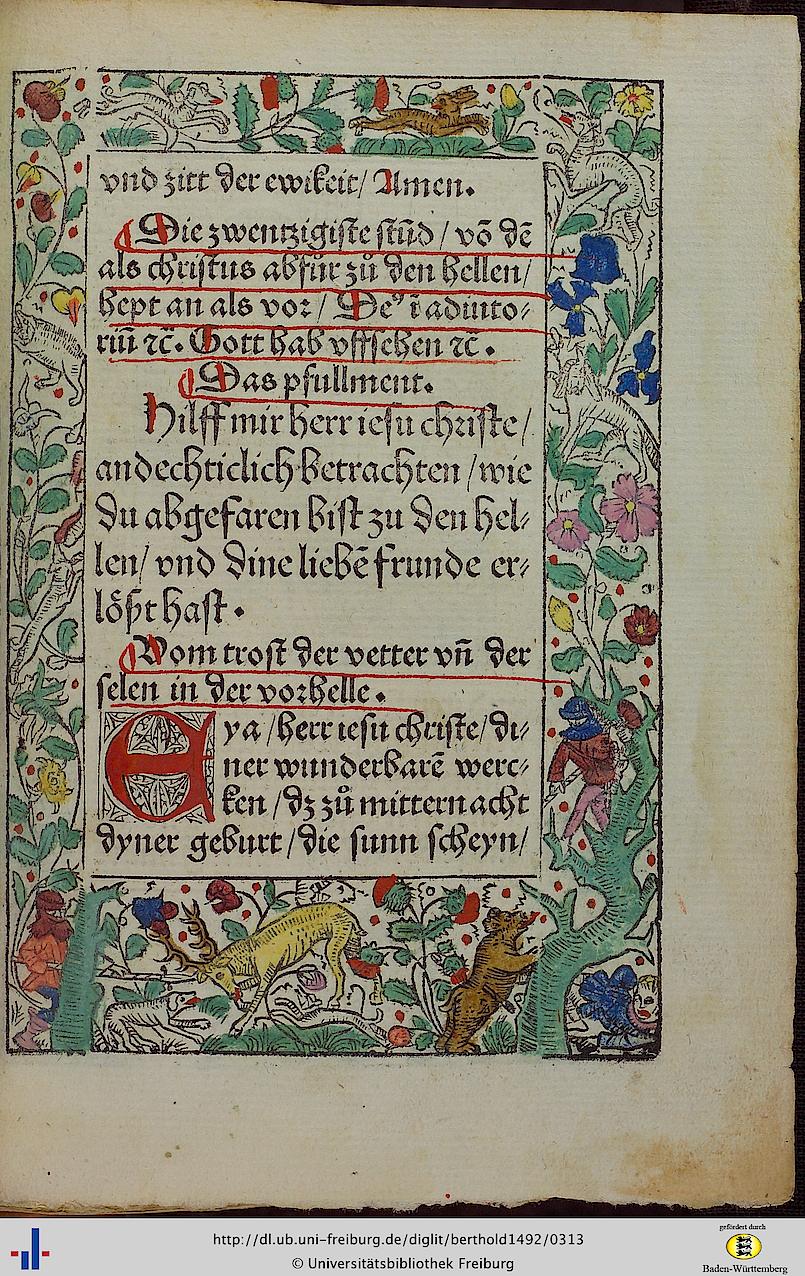 vnd zitt der ewikeit/ Amen.
¶ Die zwentzigiste stūd / võ dē
als christus abfůr zů den hellen/
hept an als vor/ De⁹ ī adiuto⸗
riū ⁊c̄. Gott hab vffsehen ⁊c̄.
¶ Das pfullment.
Hilff mir herr iesu christe/
andechticlich betrachten / wie
du abgefaren bist zu den hel⸗
len/ vnd dine liebē frunde er⸗
lößt hast.
¶ Vom trost der vetter vñ der
selen in der vorhelle.
Eya / herr iesu christe/ di⸗
ner wunderbarē werc⸗
ken / dz zů mitternacht
dyner geburt / die sunn scheyn/
http://dl.ub.uni-freiburg.de/diglit/berthold1492/0313
© Universitätsbibliothek Freiburg
gefördert durch
Baden-Württemberg